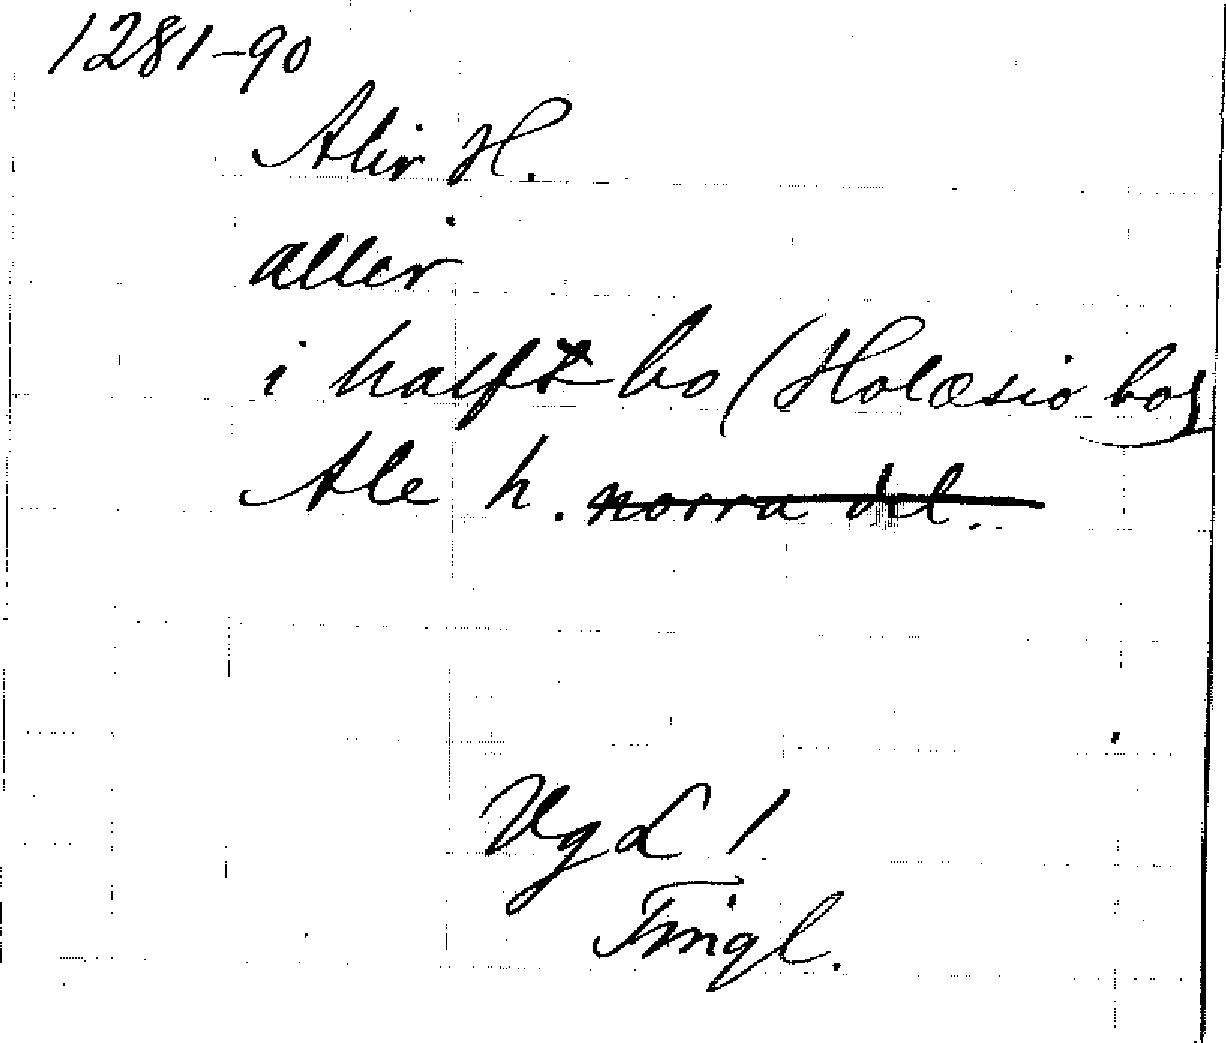 1281-90
Alir H.
allir
i halft bo (Holæsio bo)
Ale h. norra del.
VgL 1
Fingl.